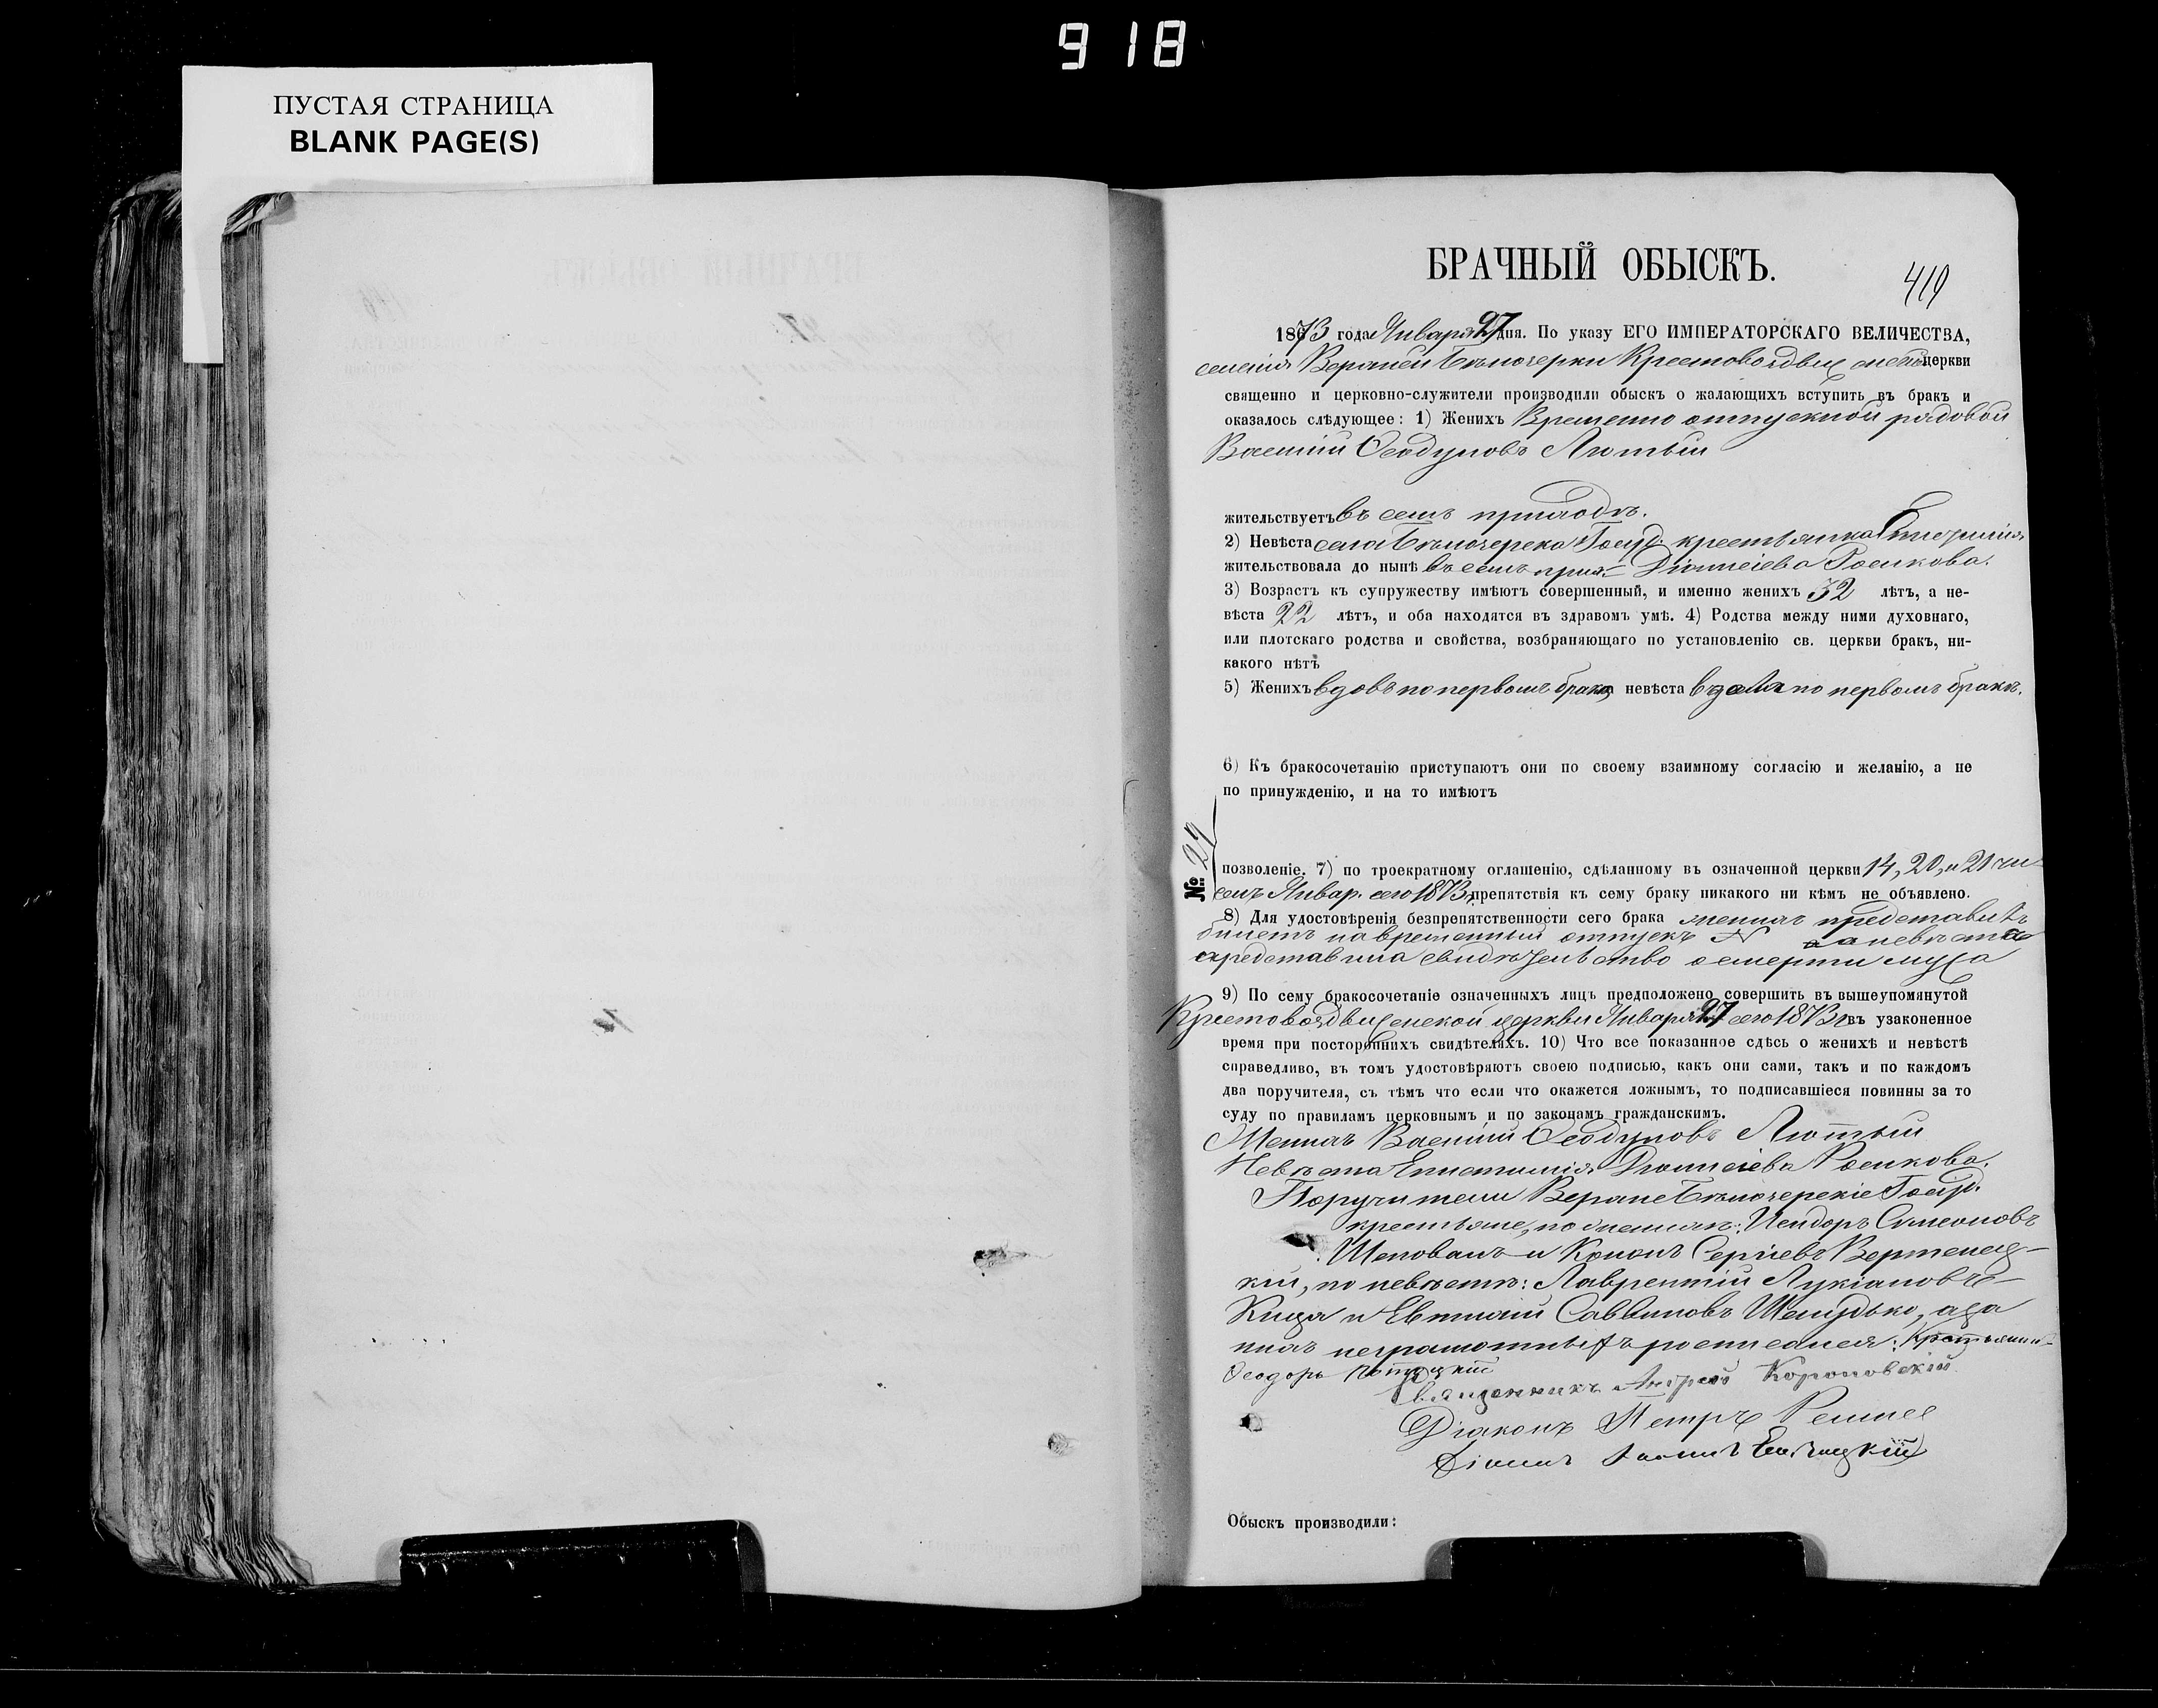 918
ПУСТАЯ СТРАНИЦА
BLANK PAGE(S)
БРАЧНЫЙ ОБЫСКЪ.
419
1873 года Января 27 дня. По указу ЕГО ИМПЕРАТОРСКАГО ВЕЛИЧЕСТВА,
селенія Крестовоздвиженской церкви
священно и церковно-служители производили обыскъ о жалающихъ вступить въ бракъ и
оказалось слѣдующее: 1) Женихъ Временно отпускной рядовой
Василій Ѳеодуловъ Лютый
жительствуетъ въ семъ приходѣ.
2) Невѣста села Госуд. крестьянка Епистимія
жительствовала до нынѣ въ семъ прих. Діонисіева Росикова.
3) Возрастъ къ супружеству имѣютъ совершенный, и именно женихъ 32 лѣтъ, а не-
вѣста 22 лѣтъ, и оба находятся въ здравомъ умѣ. 4) Родства между ними духовнаго,
или плотскаго родства и свойства, возбраняющаго по установленію св. церкви бракъ, ни-
какого нѣтъ
5) Женихъ вдовъ по первомъ бракѣ, невѣста вдова по первомъ бракѣ.
6) Къ бракосочетанію приступаютъ они по своему взаимному согласію и желанію, а не
по принужденію, и на то имѣютъ
№ 27
позволеніе. 7) по троекратному оглашенію, сдѣланному въ означенной церкви 14, 20, и 21 чи-
селъ Январ. сего 1873 г. препятствія къ сему браку никакого ни кѣмъ не объявлено.
8) Для удостовѣренія безпрепятственности сего брака женихъ представилъ
билетъ на временный отпускъ N а невѣста
представила свидѣтельство о смерти мужа
9) По сему бракосочетаніе означенныхъ лицъ предположено совершить въ вышеупомянутой
Крестовоздвиженской церкви Января 27 сего 1873 г. въ узаконенное
время при постороннихъ свидѣтеляхъ. 10) Что все показанное сдѣсь о женихѣ и невѣстѣ
справедливо, въ томъ удостовѣряютъ своею подписью, какъ они сами, такъ и по каждомъ
два поручителя, съ тѣмъ что если что окажется ложнымъ, то подписавшіеся повинны за то
суду по правиламъ церковнымъ и по законамъ гражданскимъ.
Женихъ Василій Ѳеодуловъ Лютый
Невѣста Епистимія Діонисіева Росикова.
Поручители Госуд.
крестьяне, по женихѣ: Исидоръ Симеоновъ
Шаповалъ и Кононъ Сергіевъ Вертепец-
кій, по невѣстѣ: Лаврентій Лукіановъ
Кица и Евтихій Саввиновъ а за
нихъ неграмотныхъ росписался: Крестьянинъ
Ѳеодоръ
Священникъ Андрей Короповскій
Діаконъ Петръ
Обыскъ производили: